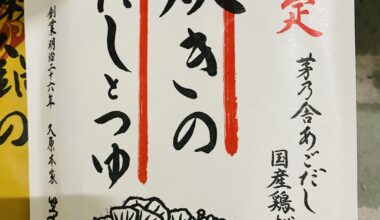 定
茅乃舎あごだし
国産鶏
焼きの
だしとつゆ
創業明治二十六年　久原本家
鍋の